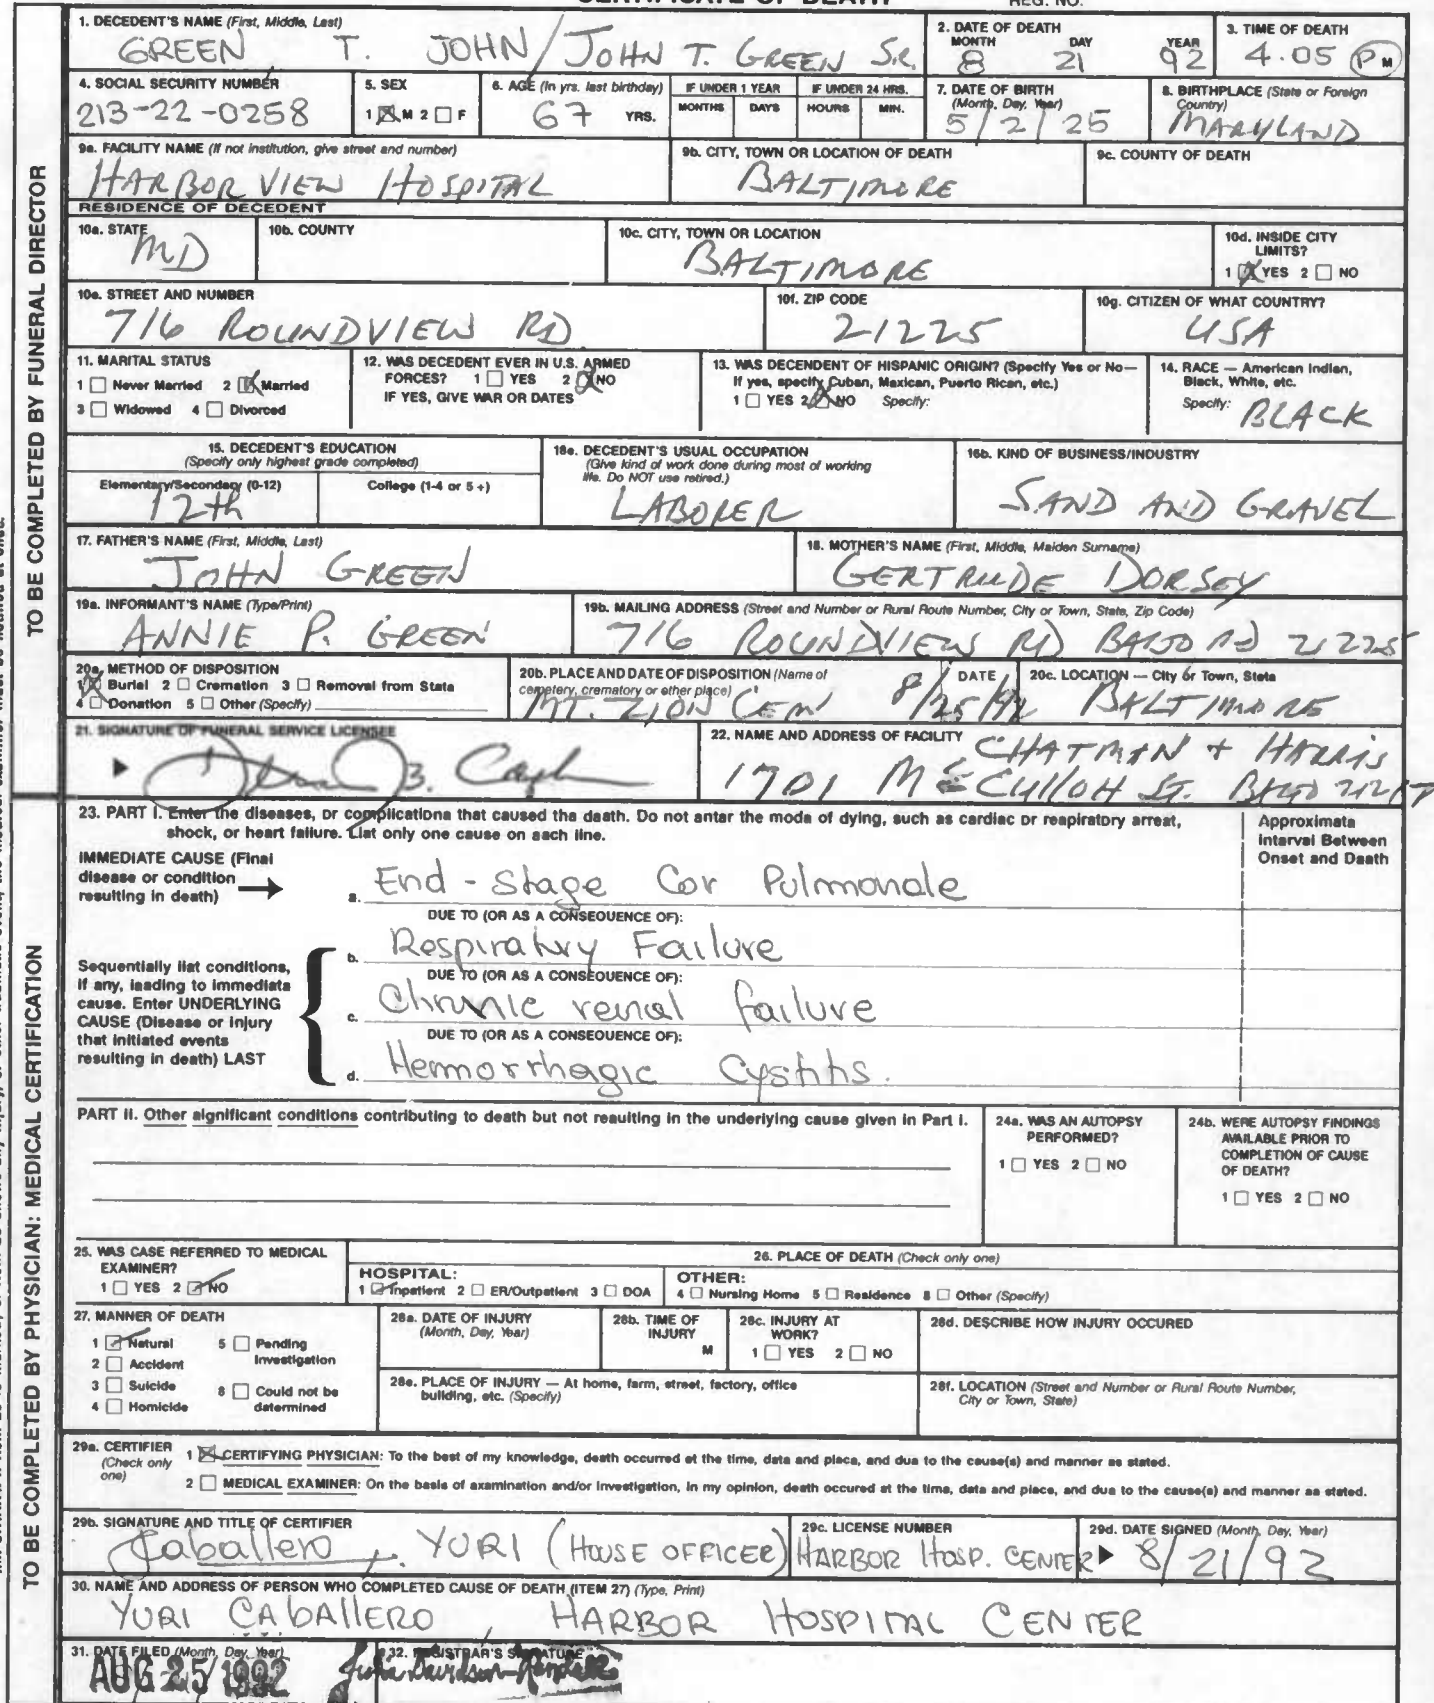 CERTIFICATE OF DEATH REG. NO.
TO BE COMPLETED BY FUNERAL DIRECTOR
1. DECEDENT'S NAME (First, Middle, Last)
GREEN T. JOHN/JOHN T. GREEN SR.
2. DATE OF DEATH
MONTH DAY YEAR
8 21 92
3. TIME OF DEATH
4.05 P M
4. SOCIAL SECURITY NUMBER
213-22-0258
5. SEX
1 ☒ M 2 ☐ F
6. AGE (In yrs. last birthday)
67 YRS.
IF UNDER 1 YEAR
MONTHS DAYS
IF UNDER 24 HRS.
HOURS MIN.
7. DATE OF BIRTH
(Month, Day, Year)
5/2/25
8. BIRTHPLACE (State or Foreign
Country)
MARYLAND
9a. FACILITY NAME (If not institution, give street and number)
HARBOR VIEW HOSPITAL
9b. CITY, TOWN OR LOCATION OF DEATH
BALTIMORE
9c. COUNTY OF DEATH
RESIDENCE OF DECEDENT
10a. STATE
MD
10b. COUNTY
10c. CITY, TOWN OR LOCATION
BALTIMORE
10d. INSIDE CITY
LIMITS?
1 ☒ YES 2 ☐ NO
10e. STREET AND NUMBER
716 ROUNDVIEW RD
10f. ZIP CODE
21225
10g. CITIZEN OF WHAT COUNTRY?
USA
11. MARITAL STATUS
1 ☐ Never Married 2 ☒ Married
3 ☐ Widowed 4 ☐ Divorced
12. WAS DECEDENT EVER IN U.S. ARMED
FORCES? 1 ☐ YES 2 ☒ NO
IF YES, GIVE WAR OR DATES
13. WAS DECENDENT OF HISPANIC ORIGIN? (Specify Yes or No—
If yes, specify Cuban, Mexican, Puerto Rican, etc.)
1 ☐ YES 2 ☒ NO Specify:
14. RACE — American Indian,
Black, White, etc.
Specify: BLACK
15. DECEDENT'S EDUCATION
(Specify only highest grade completed)
Elementary/Secondary (0-12) College (1-4 or 5+)
12th
16a. DECEDENT'S USUAL OCCUPATION
(Give kind of work done during most of working
life. Do NOT use retired.)
LABORER
16b. KIND OF BUSINESS/INDUSTRY
SAND AND GRAVEL
17. FATHER'S NAME (First, Middle, Last)
JOHN GREEN
18. MOTHER'S NAME (First, Middle, Maiden Surname)
GERTRUDE DORSEY
19a. INFORMANT'S NAME (Type/Print)
ANNIE P. GREEN
19b. MAILING ADDRESS (Street and Number or Rural Route Number, City or Town, State, Zip Code)
716 ROUNDVIEW RD BALTO MD 21225
20a. METHOD OF DISPOSITION
1 ☒ Burial 2 ☐ Cremation 3 ☐ Removal from State
4 ☐ Donation 5 ☐ Other (Specify)
20b. PLACE AND DATE OF DISPOSITION (Name of
cemetery, crematory or other place)
MT. ZION CEM
DATE
8/25/92
20c. LOCATION — City or Town, State
BALTIMORE
21. SIGNATURE OF FUNERAL SERVICE LICENSEE
22. NAME AND ADDRESS OF FACILITY CHATMAN + HARRIS
1701 McCULLOH ST. BALTO 21217
TO BE COMPLETED BY PHYSICIAN: MEDICAL CERTIFICATION
23. PART I. Enter the diseases, or complications that caused the death. Do not enter the mode of dying, such as cardiac or respiratory arrest,
shock, or heart failure. List only one cause on each line.
Approximate
Interval Between
Onset and Death
IMMEDIATE CAUSE (Final
disease or condition
resulting in death) →
a. End-Stage Cor Pulmonale
DUE TO (OR AS A CONSEQUENCE OF):
b. Respiratory Failure
DUE TO (OR AS A CONSEQUENCE OF):
Sequentially list conditions,
if any, leading to immediate
cause. Enter UNDERLYING
CAUSE (Disease or injury
that initiated events
resulting in death) LAST
c. Chronic renal failure
DUE TO (OR AS A CONSEQUENCE OF):
d. Hemorrhagic Cystitis.
PART II. Other significant conditions contributing to death but not resulting in the underlying cause given in Part I.
24a. WAS AN AUTOPSY
PERFORMED?
1 ☐ YES 2 ☐ NO
24b. WERE AUTOPSY FINDINGS
AVAILABLE PRIOR TO
COMPLETION OF CAUSE
OF DEATH?
1 ☐ YES 2 ☐ NO
25. WAS CASE REFERRED TO MEDICAL
EXAMINER?
1 ☐ YES 2 ☒ NO
26. PLACE OF DEATH (Check only one)
HOSPITAL:
1 ☒ Inpatient 2 ☐ ER/Outpatient 3 ☐ DOA
OTHER:
4 ☐ Nursing Home 5 ☐ Residence 8 ☐ Other (Specify)
27. MANNER OF DEATH
1 ☒ Natural 5 ☐ Pending
Investigation
2 ☐ Accident
3 ☐ Suicide 8 ☐ Could not be
determined
4 ☐ Homicide
28a. DATE OF INJURY
(Month, Day, Year)
28b. TIME OF
INJURY
M
28c. INJURY AT
WORK?
1 ☐ YES 2 ☐ NO
28d. DESCRIBE HOW INJURY OCCURED
28e. PLACE OF INJURY — At home, farm, street, factory, office
building, etc. (Specify)
28f. LOCATION (Street and Number or Rural Route Number,
City or Town, State)
29a. CERTIFIER
(Check only
one)
1 ☒ CERTIFYING PHYSICIAN: To the best of my knowledge, death occurred at the time, date and place, and due to the cause(s) and manner as stated.
2 ☐ MEDICAL EXAMINER: On the basis of examination and/or investigation, in my opinion, death occured at the time, date and place, and due to the cause(s) and manner as stated.
29b. SIGNATURE AND TITLE OF CERTIFIER
Caballero, YURI (HOUSE OFFICER)
29c. LICENSE NUMBER
HARBOR HOSP. CENTER
29d. DATE SIGNED (Month, Day, Year)
8/21/92
30. NAME AND ADDRESS OF PERSON WHO COMPLETED CAUSE OF DEATH (ITEM 27) (Type, Print)
YURI CABALLERO, HARBOR HOSPITAL CENTER
31. DATE FILED (Month, Day, Year)
AUG 25 1992
32. REGISTRAR'S SIGNATURE
Julia Davidson-Randall